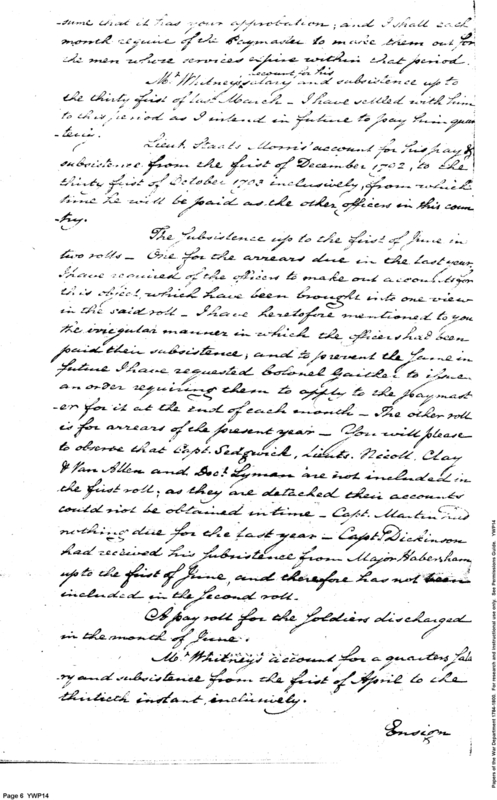 -sume that it has your approbation; and I shall each
month require of the Paymaster to make them out for
the men whose services expire within that period.
account for his
Mr Whitney's salary and subsistence up to
the thirty first of last March – I have settled with him
to this period as I intend in future to pay him quar
-terly.
Lieut. Staats Morris' account for his pay &
subsistence from the first of December 1792, to the
thirty first of October 1793 inclusively, from which
time he will be paid as the other officers in this coun
-try.
The Subsistence up to the first of June in
two rolls – One for the arrears due in the last year.
I have required of the officers to make out accounts for
this object, which have been brought into one view
in the said roll – I have heretofore mentioned to you
the irregular manner in which the officers had been
paid their subsistence; and to prevent the same in
future I have requested Colonel Gaither to issue
an order requiring them to apply to the paymast
-er for it at the end of each month – The other roll
is for arrears of the present year – You will please
to observe that Capt. Sedgwick, Lieuts. Nicoll, Clay
& Van Allen and Doct. Lyman are not included in
the first roll; as they are detached their accounts
could not be obtained in time – Capt. Martin had
nothing due for the last year – Capt. Dickinson
had received his subsistence from Major Habersham
up to the first of June, and therefore has not been
included in the second roll.
A pay roll for the Soldiers discharged
in the month of June.
Mr Whitney's account for a quarters sala
ry and subsistence from the first of April to the
thirtieth instant, inclusively.
Ensign
Page 6 YWP14
Papers of the War Department 1784-1800. For research and instructional use only. See Permissions Guide. YWP14